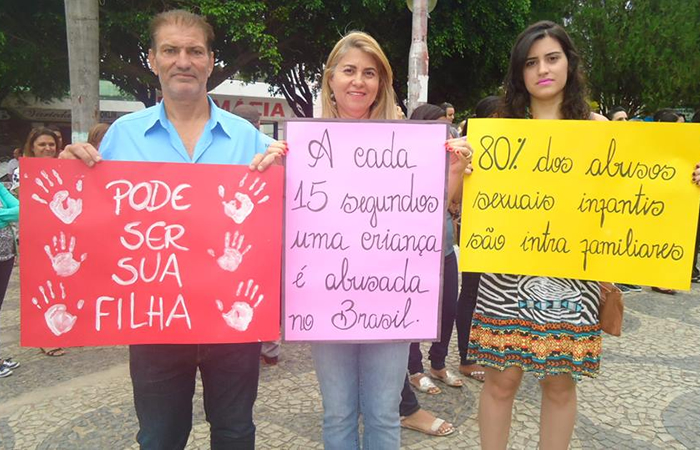 PODE
SER
SUA
FILHA
A cada
15 segundos
uma criança
é abusada
no Brasil.
80% dos abusos
sexuais infantis
são intra familiares